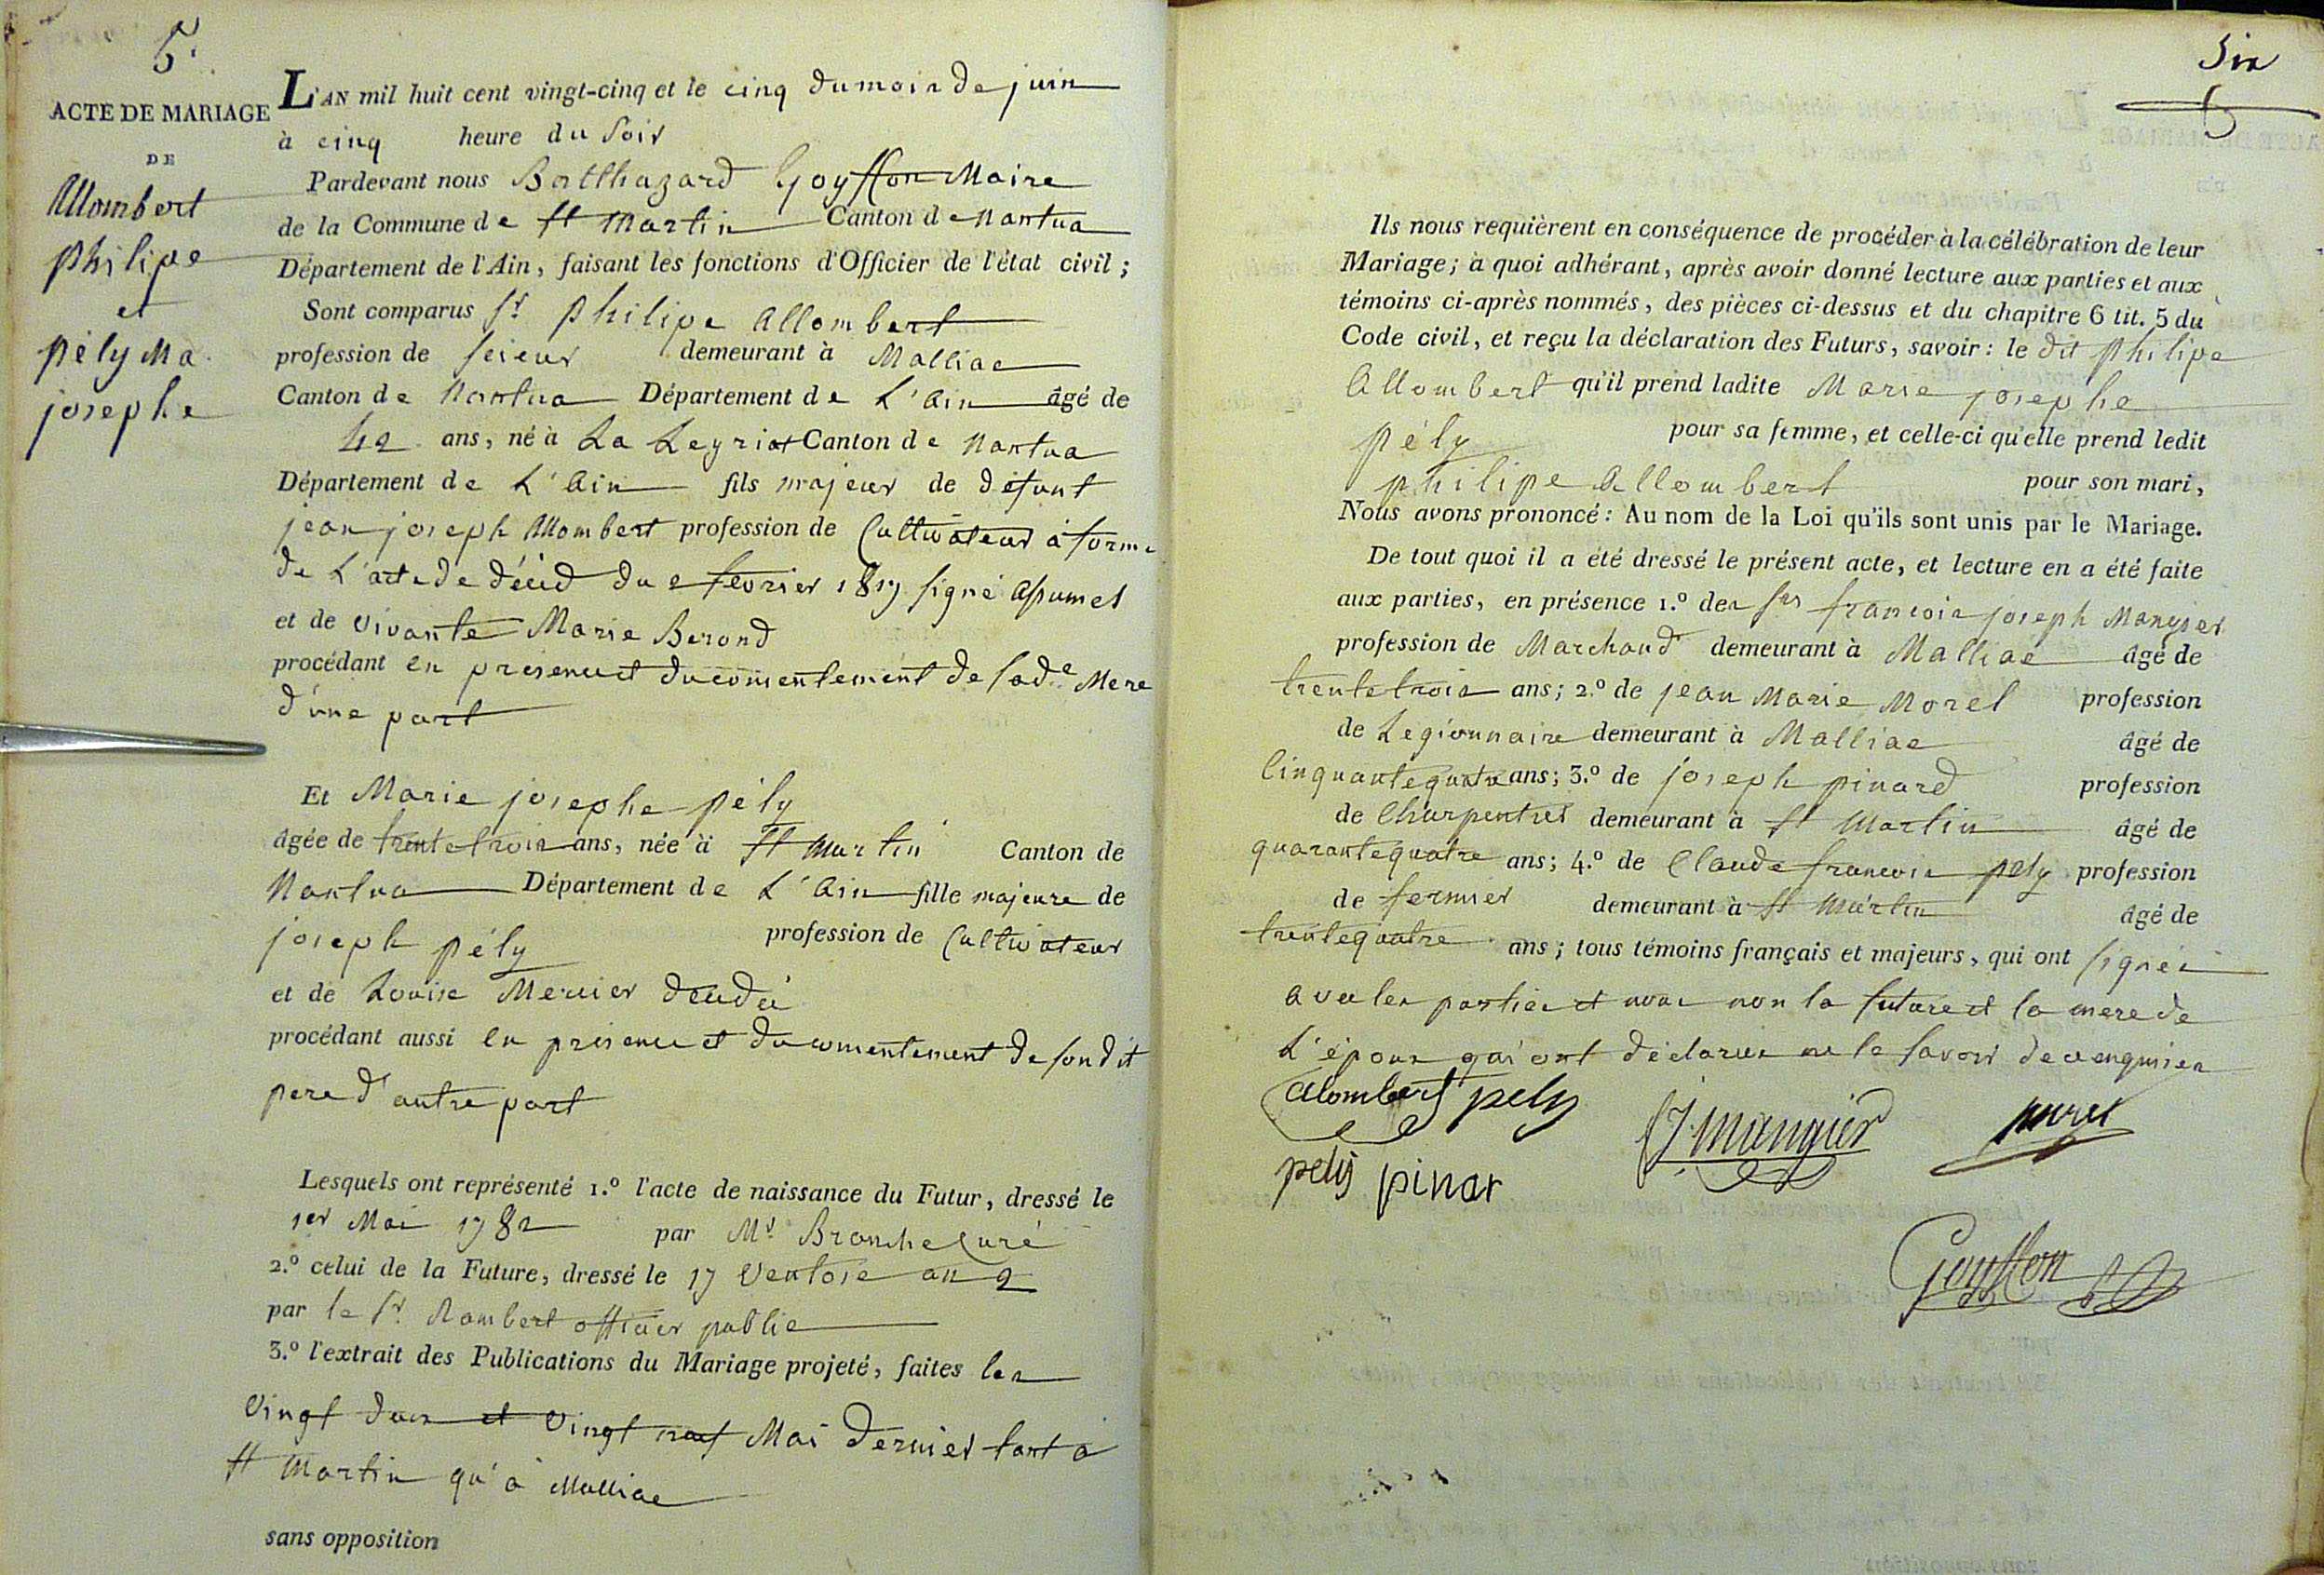 5.
ACTE DE MARIAGE
DE
Allombert
philipe
et
pély Ma.
josephe
L'AN mil huit cent vingt-cinq et le cinq du mois de juin
à cinq heure du soir
Pardevant nous Batthazard Goyffon Maire
de la Commune de St Martin Canton de Nantua
Département de l'Ain, faisant les fonctions d'Officier de l'état civil ;
Sont comparus Sr philipe allombert
profession de scieur demeurant à Malliae
Canton de Nantua Département de L'Ain âgé de
42 ans, né à La Leyriat Canton de Nantua
Département de L'Ain fils majeur de défunt
jean joseph Allombert profession de Cultivateur à forme
de L'acte de décéd du 2 fevrier 1817 signé
et de vivante Marie Berond
procédant en presence et du consentement de sade Mere
d'une part
Et Marie josephe pély
âgée de trente trois ans, née à St Martin Canton de
Nantua Département de L'Ain fille majeure de
joseph pély profession de Cultivateur
et de Louise Mercier décédé
procédant aussi en presence et du consentement de son dit
pere d'autre part
Lesquels ont représenté 1.º l'acte de naissance du Futur, dressé le
1er Mai 1782 par Mr Branche Curé
2.º celui de la Future, dressé le 17 Ventose an 2
par le Sr. Rambert officier public
3.º l'extrait des Publications du Mariage projeté, faites les
vingt deux et vingt neuf Mai dernier tant à
St Martin qu'à Malliae
sans opposition
Six
5
Ils nous requièrent en conséquence de procéder à la célébration de leur
Mariage ; à quoi adhérant, après avoir donné lecture aux parties et aux
témoins ci-après nommés, des pièces ci-dessus et du chapitre 6 tit. 5 du
Code civil, et reçu la déclaration des Futurs, savoir : le dit philipe
Allombert qu'il prend ladite Marie josephe
pély pour sa femme, et celle-ci qu'elle prend ledit
philipe Allombert pour son mari,
Nous avons prononcé : Au nom de la Loi qu'ils sont unis par le Mariage.
De tout quoi il a été dressé le présent acte, et lecture en a été faite
aux parties, en présence 1.º des srs francois joseph Mangier
profession de Marchand demeurant à Malliae âgé de
trente trois ans ; 2.º de jean Marie Morel profession
de Legionnaire demeurant à Malliae âgé de
Cinquante quatre ans ; 3.º de joseph pinard profession
de Charpentier demeurant à St Martin âgé de
quarante quatre ans ; 4.º de Claude francois pely profession
de fermier demeurant à St Martin âgé de
trente quatre ans ; tous témoins français et majeurs, qui ont signés
avec les parties et nous non la future et la mere de
L'époux qui ont déclarés ne le savoir de ce enquises
alombert pely
fJ. mangier
morel
pely pinar
Goyffon